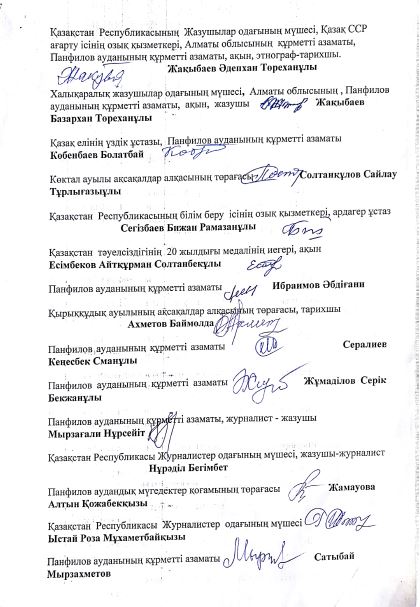 Қазақстан Республикасының Жазушылар одағының мүшесі, Қазақ ССР
ағарту ісінің озық қызметкері, Алматы облысының құрметті азаматы,
Панфилов ауданының құрметті азаматы, ақын, этнограф-тарихшы.
Жақыбаев Әдепхан Төреханұлы
Халықаралық жазушылар одағының мүшесі, Алматы облысының , Панфилов
ауданының құрметті азаматы, ақын, жазушы Жақыбаев
Базархан Төреханұлы
Қазақ елінің үздік ұстазы, Панфилов ауданының құрметті азаматы
Көбенбаев Болатбай
Көктал ауылы ақсақалдар алқасының төрағасы Солтанқұлов Сайлау
Тұрлығазыұлы
Қазақстан Республикасының білім беру ісінің озық қызметкері, ардагер ұстаз
Сегізбаев Бижан Рамазанұлы
Қазақстан тәуелсіздігінің 20 жылдығы медалінің иегері, ақын
Есімбеков Айтқұрман Солтанбекұлы
Панфилов ауданының құрметті азаматы Ибраимов Әбдіғани
Қырыққұдық ауылының ақсақалдар алқасының төрағасы, тарихшы
Ахметов Баймолда
Панфилов ауданының құрметті азаматы Сералиев
Кеңесбек Сманұлы
Панфилов ауданының құрметті азаматы Жұмаділов Серік
Бекжанұлы
Панфилов ауданының құрметті азаматы, журналист - жазушы
Мырзағали Нұрсейіт
Қазақстан Республикасы Журналистер одағының мүшесі, жазушы-журналист
Нұрәділ Бегімбет
Панфилов аудандық мүгедектер қоғамының төрағасы Жамауова
Алтын Қожабекқызы
Қазақстан Республикасы Журналистер одағының мүшесі
Ыстай Роза Мұхаметбайқызы
Панфилов ауданының құрметті азаматы Сатыбай
Мырзахметов